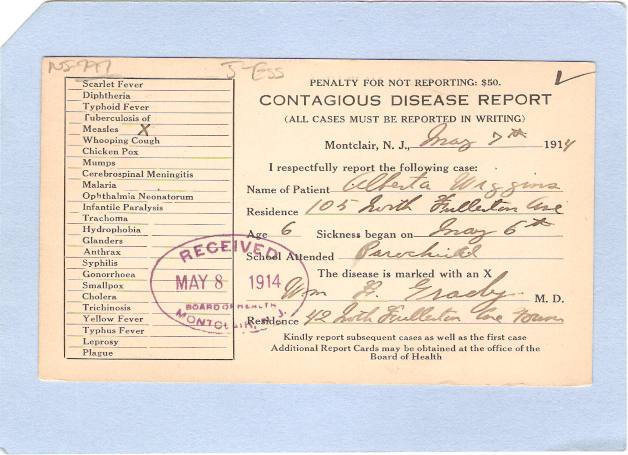 J-Ess
Scarlet Fever
Diphtheria
Typhoid Fever
Tuberculosis of
Measles X
Whooping Cough
Chicken Pox
Mumps
Cerebrospinal Meningitis
Malaria
Ophthalmia Neonatorum
Infantile Paralysis
Trachoma
Hydrophobia
Glanders
Anthrax
Syphilis
Gonorrhoea
Smallpox
Cholera
Trichinosis
Yellow Fever
Typhus Fever
Leprosy
Plague
PENALTY FOR NOT REPORTING: $50.
CONTAGIOUS DISEASE REPORT
(ALL CASES MUST BE REPORTED IN WRITING)
Montclair, N. J., May 7th 1914
I respectfully report the following case:
Name of Patient Alberta Wiggins
Residence 105 North Fullerton Ave
Age 6 Sickness began on May 6th
School Attended Parochial
The disease is marked with an X
Wm M. D.
Residence 42 North Fullerton Ave
Kindly report subsequent cases as well as the first case
Additional Report Cards may be obtained at the office of the
Board of Health
RECEIVED
MAY 8 1914
BOARD OF HEALTH
MONTCLAIR, N.J.